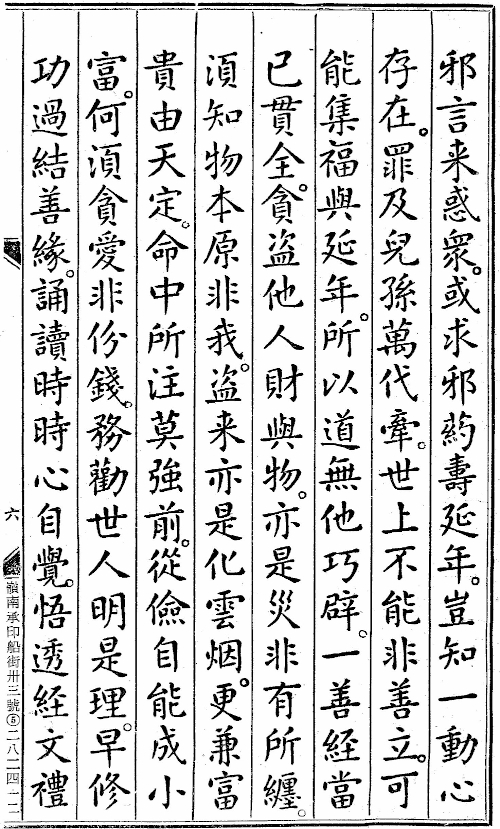 邪言来惑衆。或求邪葯壽延年。豈知一動心
存在。罪及兒孫萬代牽。世上不能非善立。可
能集福與延年。所以道無他巧辟。一善經當
已貫全。貪盜他人財與物。亦是災非有所纏。
須知物本原非我。盜来亦是化雲烟。更兼富
貴由天定。命中所注莫強前。從儉自能成小
富。何須貪愛非份錢。務勸世人明是理。早修
功過結善緣。誦讀時時心自覺。悟透経文禮
六
嶺南承印船街卅三號⑤二八二四一二